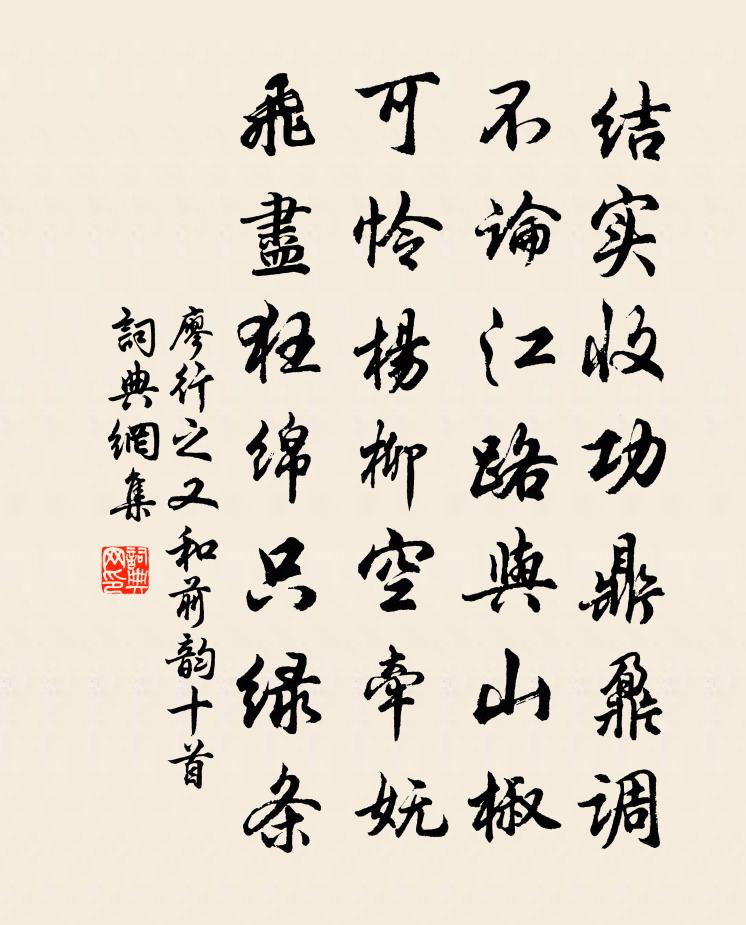 结实收功鼎鼐调
不論江路與山椒
可怜楊柳空牽妩
飛盡狂绵只绿条
廖行之又和前韵十首
詞典網集
詞典网印